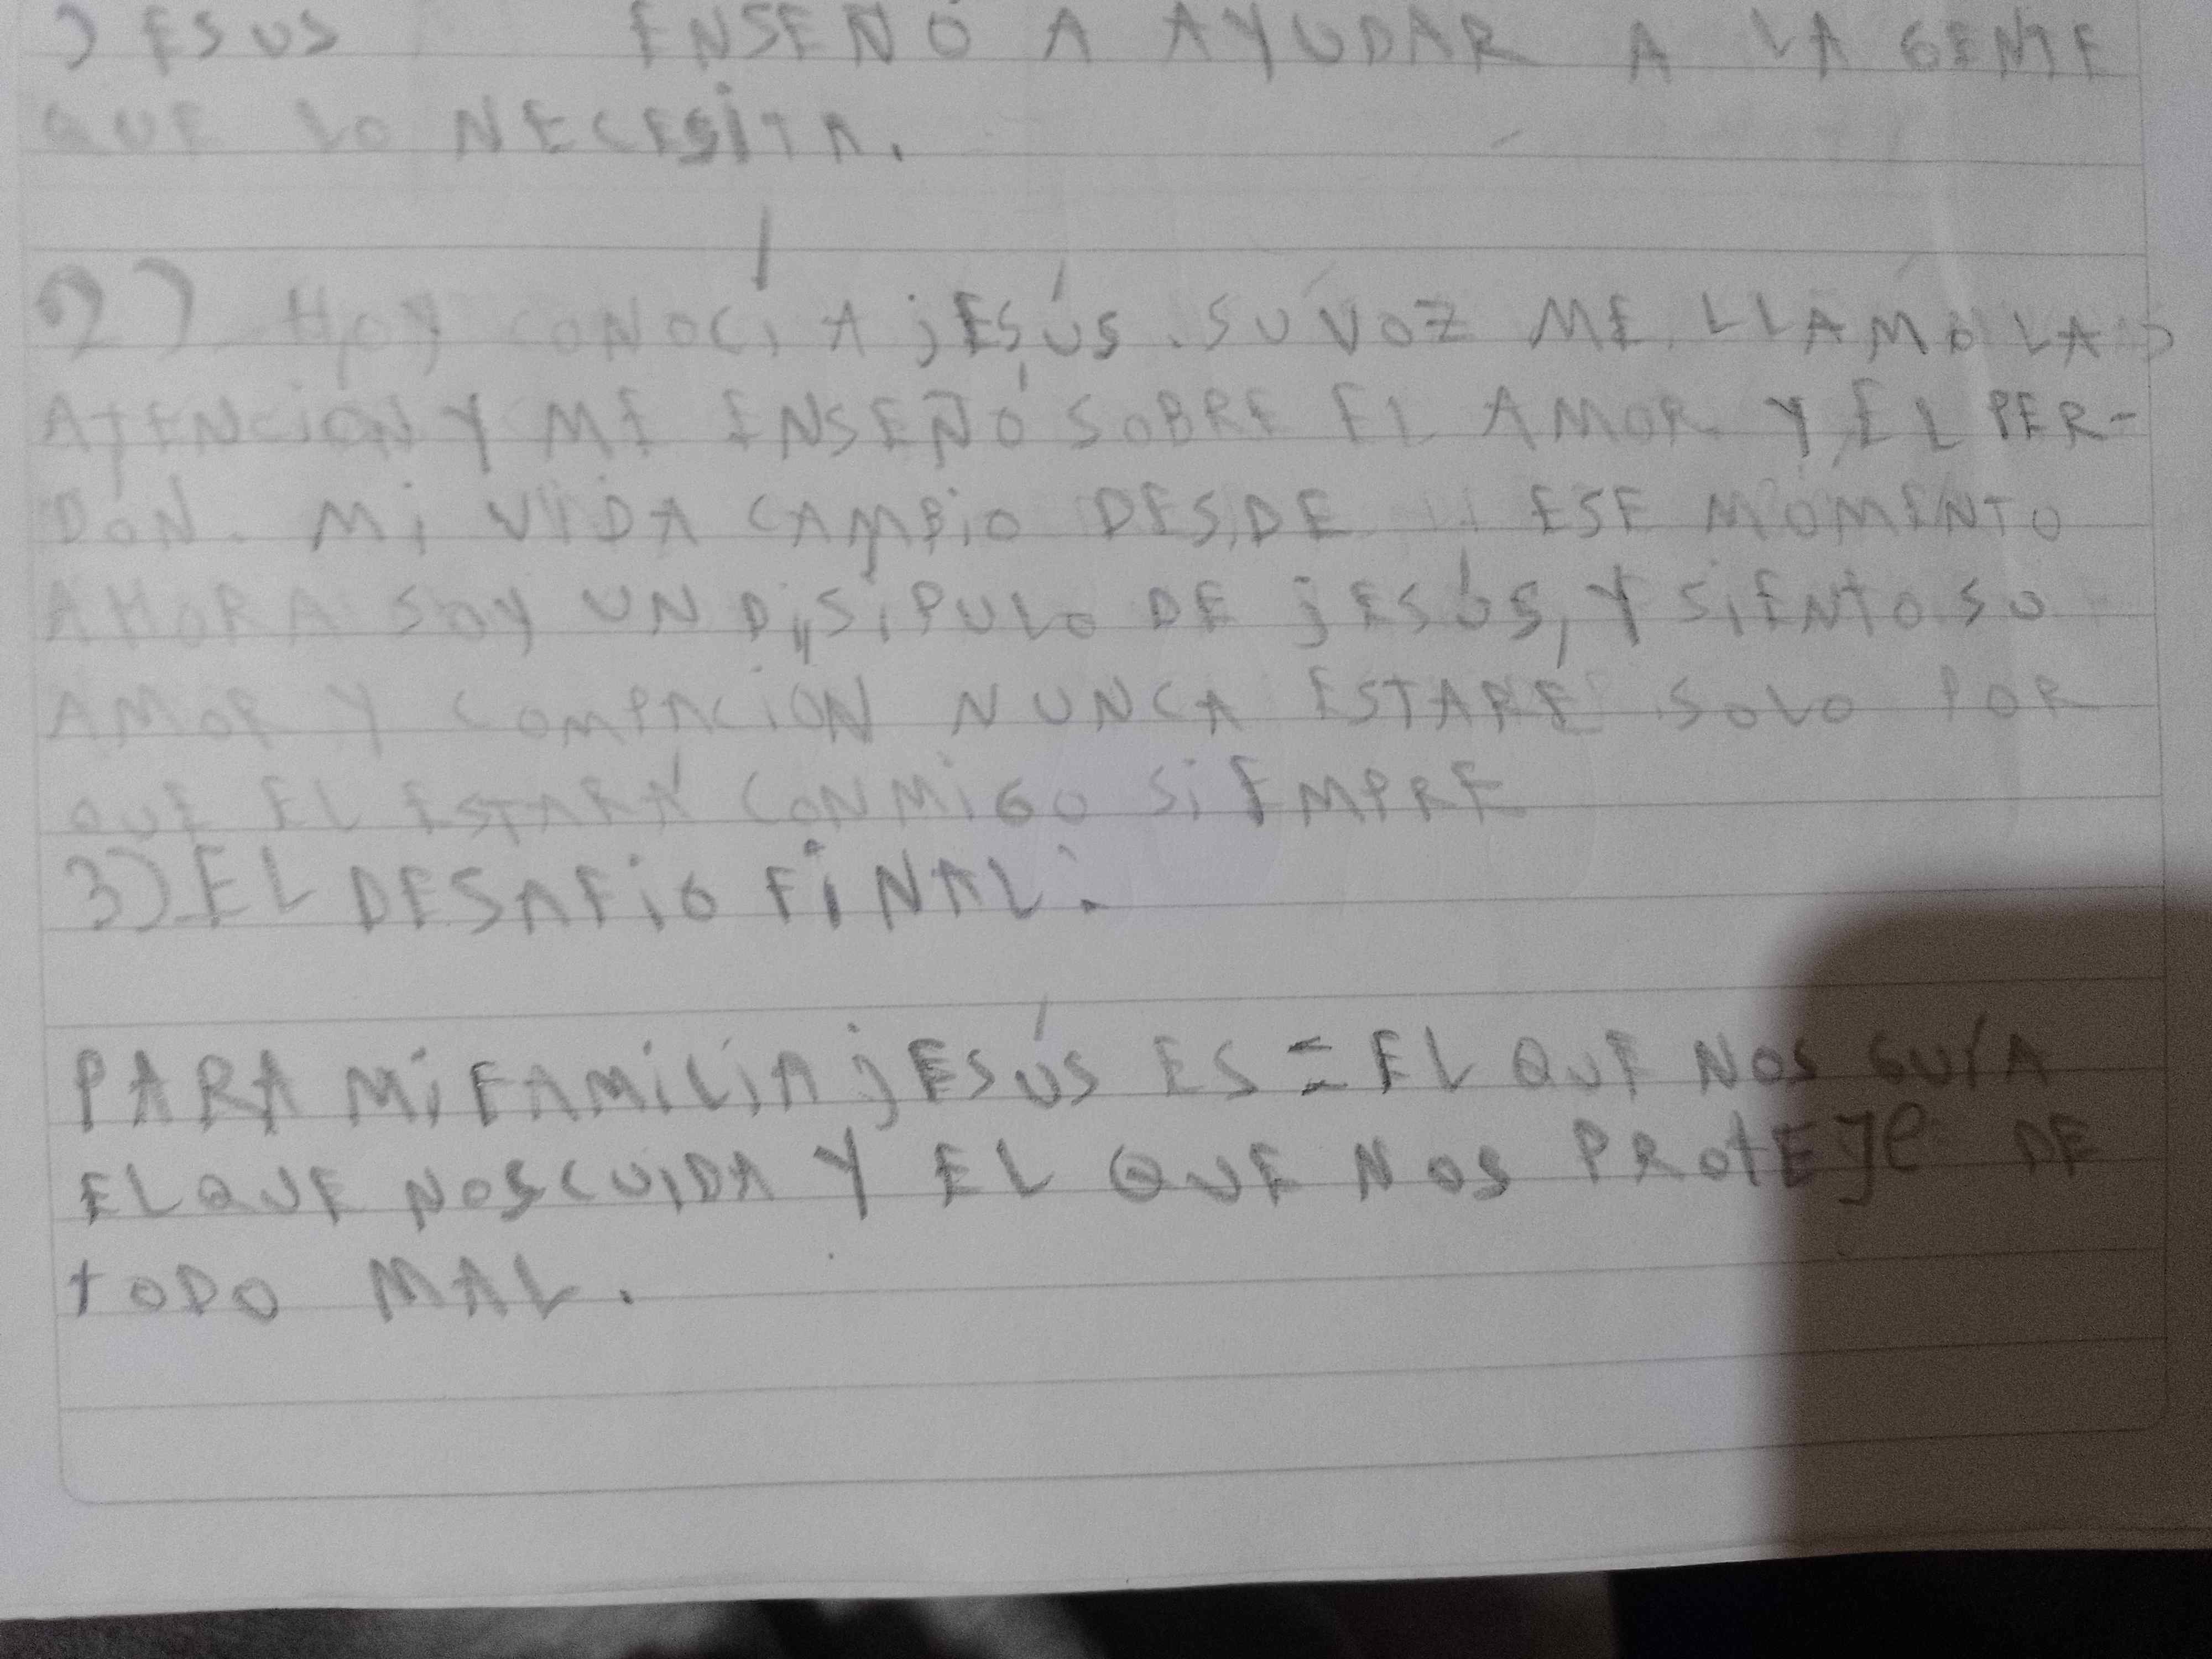 JESUS ENSEÑO A AYUDAR A LA GENTE
QUE LO NECESITA.
2) HOY CONOCÍ A jESÚS. SU VOZ ME LLAMÓ LA
ATENCIÓN Y ME ENSEÑÓ SOBRE EL AMOR Y EL PER-
DÓN. Mi VIDA CAMBiO DESDE ESE MOMENTO
AHORA SOY UN DiSiPULO DE jESÚS, Y SiENTO SU
AMOR Y COMPACiON NUNCA ESTARE SOLO POR
QUE EL ESTARÁ CONMiGO SiEMPRE
3) EL DESAFiO FiNAL:
PARA Mi FAMiLiA jESÚS ES = EL QUE NOS GUÍA
EL QUE NOS CUIDA Y EL QUE NOS PROtEJe DE
tODO MAL.